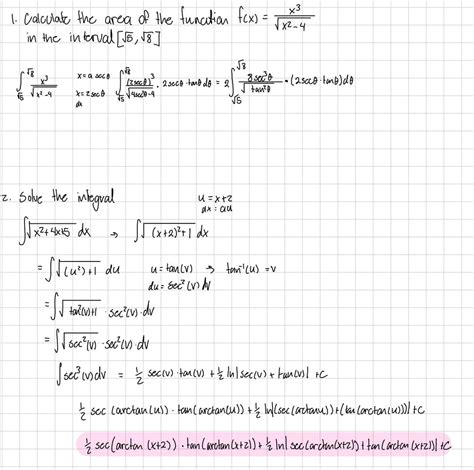 1. Calculate the area of the function f(x) = x³/√(x²-4)
in the interval [√5, √8]
∫_√5^√8 x³/√(x²-4)   x = a secθ   ∫_√5^√8 (2secθ)³/√(4sec²θ-4) · 2secθ·tanθ dθ = 2∫_√5^√8 8sec³θ/√(tan²θ) · (2secθ·tanθ)dθ
x = 2secθ
dx
2. Solve the integral   u = x+2
dx = du
∫√(x²+4x+5) dx → ∫√((x+2)²+1) dx
= ∫√((u²)+1) du   u = tan(v) → tan⁻¹(u) = v
du = sec²(v) dv
= ∫√(tan²(v)+1) · sec²(v)·dv
= ∫√(sec²(v)) · sec²(v) dv
∫sec³(v)dv = ½ sec(v)·tan(v) + ½ ln|sec(v) + tan(v)| + C
½ sec(arctan(u))·tan(arctan(u)) + ½ ln|(sec(arctan(u)) + (tan(arctan(u)))| + C
½ sec(arctan(x+2))·tan(arctan(x+2)) + ½ ln|sec(arctan(x+2)) + tan(arctan(x+2))| + C